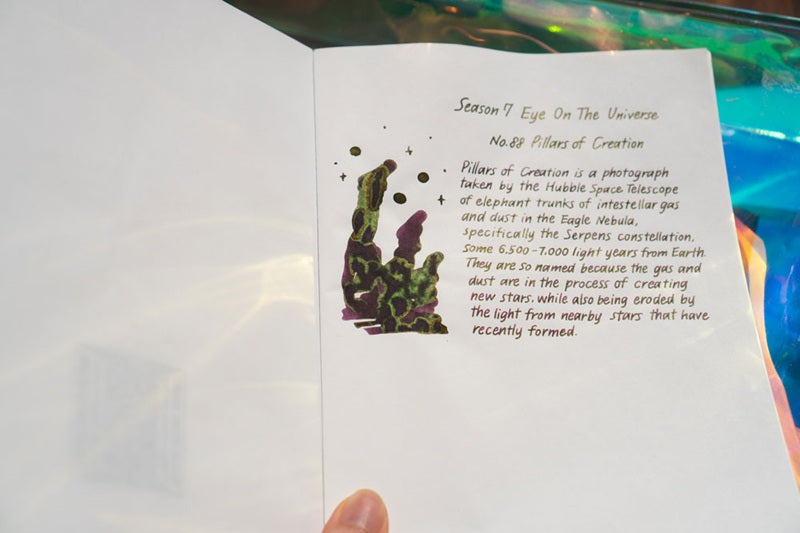 Season 7 Eye On The Universe
No.88 Pillars of Creation
Pillars of Creation is a photograph
taken by the Hubble Space Telescope
of elephant trunks of intestellar gas
and dust in the Eagle Nebula,
specifically the Serpens constellation,
some 6.500-7.000 light years from Earth.
They are so named because the gas and
dust are in the process of creating
new stars. while also being eroded by
the light from nearby stars that have
recently formed.